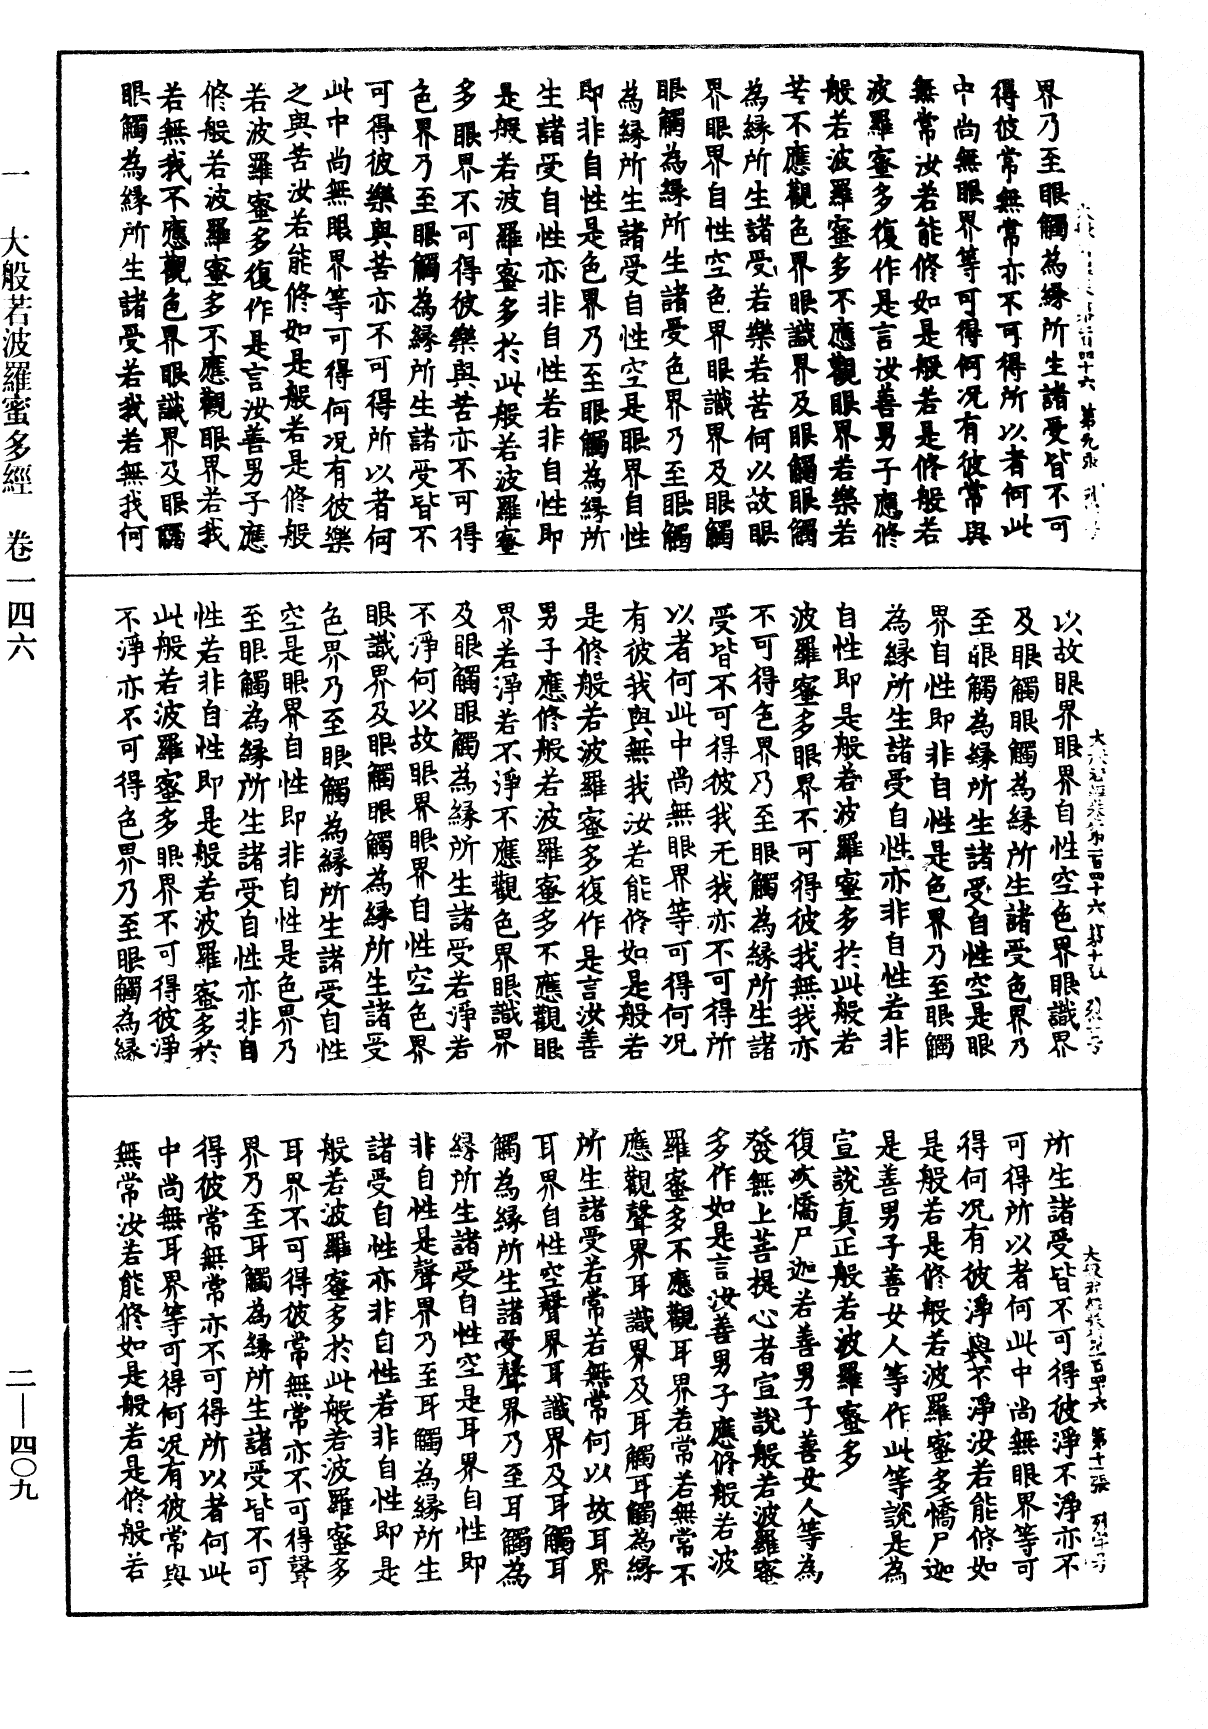 界乃至眼觸為緣所生諸受皆不可
得彼常無常亦不可得所以者何此
中尚無眼界等可得何況有彼常與
無常汝若能修如是般若是修般若
波羅蜜多復作是言汝善男子應修
般若波羅蜜多不應觀眼界若樂若
苦不應觀色界眼識界及眼觸眼觸
為緣所生諸受若樂若苦何以故眼
界眼界自性空色界眼識界及眼觸
眼觸為緣所生諸受色界乃至眼觸
為緣所生諸受自性空是眼界自性
即非自性是色界乃至眼觸為緣所
生諸受自性亦非自性若非自性即
是般若波羅蜜多於此般若波羅蜜
多眼界不可得彼樂與苦亦不可得
色界乃至眼觸為緣所生諸受皆不
可得彼樂與苦亦不可得所以者何
此中尚無眼界等可得何況有彼樂
之與苦汝若能修如是般若是修般
若波羅蜜多復作是言汝善男子應
修般若波羅蜜多不應觀眼界若我
若無我不應觀色界眼識界及眼觸
眼觸為緣所生諸受若我若無我何
大般若經卷第一百四十六 第十張 列字号
以故眼界眼界自性空色界眼識界
及眼觸眼觸為緣所生諸受色界乃
至眼觸為緣所生諸受自性空是眼
界自性即非自性是色界乃至眼觸
為緣所生諸受自性亦非自性若非
自性即是般若波羅蜜多於此般若
波羅蜜多眼界不可得彼我無我亦
不可得色界乃至眼觸為緣所生諸
受皆不可得彼我无我亦不可得所
以者何此中尚無眼界等可得何況
有彼我與無我汝若能修如是般若
是修般若波羅蜜多復作是言汝善
男子應修般若波羅蜜多不應觀眼
界若淨若不淨不應觀色界眼識界
及眼觸眼觸為緣所生諸受若淨若
不淨何以故眼界眼界自性空色界
眼識界及眼觸眼觸為緣所生諸受
色界乃至眼觸為緣所生諸受自性
空是眼界自性即非自性是色界乃
至眼觸為緣所生諸受自性亦非自
性若非自性即是般若波羅蜜多於
此般若波羅蜜多眼界不可得彼淨
不淨亦不可得色界乃至眼觸為緣
大般若經卷第一百四十六 第十一張 列字号
所生諸受皆不可得彼淨不淨亦不
可得所以者何此中尚無眼界等可
得何況有彼淨與不淨汝若能修如
是般若是修般若波羅蜜多憍尸迦
是善男子善女人等作此等說是為
宣說真正般若波羅蜜多
復次憍尸迦若善男子善女人等為
發無上菩提心者宣說般若波羅蜜
多作如是言汝善男子應修般若波
羅蜜多不應觀耳界若常若無常不
應觀聲界耳識界及耳觸耳觸為緣
所生諸受若常若無常何以故耳界
耳界自性空聲界耳識界及耳觸耳
觸為緣所生諸受聲界乃至耳觸為
緣所生諸受自性空是耳界自性即
非自性是聲界乃至耳觸為緣所生
諸受自性亦非自性若非自性即是
般若波羅蜜多於此般若波羅蜜多
耳界不可得彼常無常亦不可得聲
界乃至耳觸為緣所生諸受皆不可
得彼常無常亦不可得所以者何此
中尚無耳界等可得何況有彼常與
無常汝若能修如是般若是修般若
一 大般若波羅蜜多經 卷一四六
二—四〇九